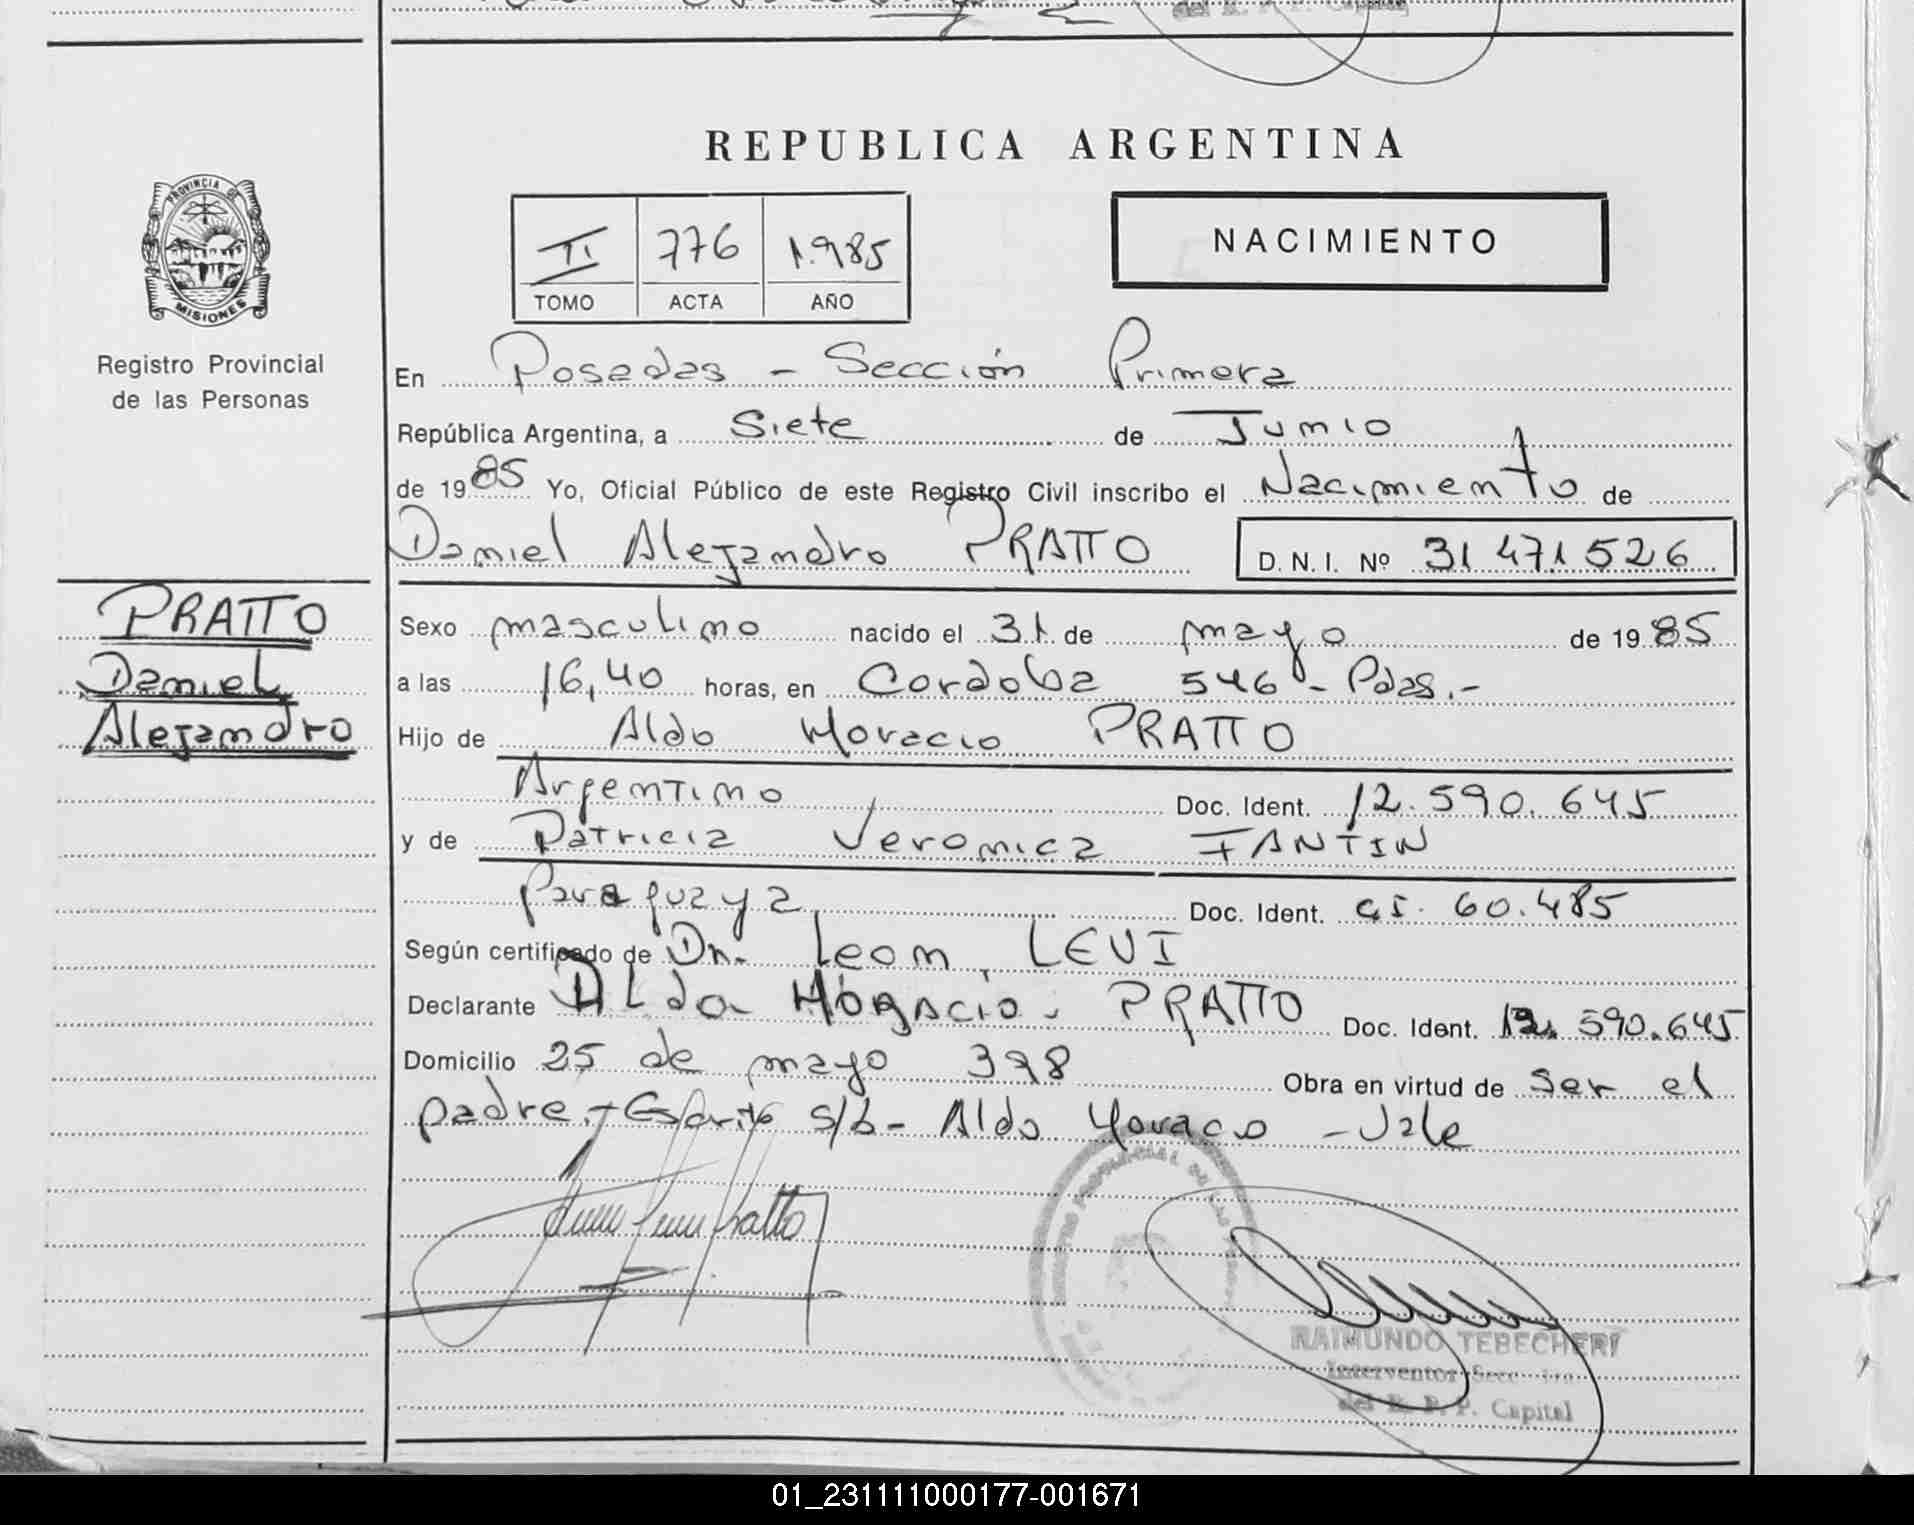 REPUBLICA ARGENTINA
PROVINCIA DE
MISIONES
Registro Provincial
de las Personas
II 776 1.985
TOMO ACTA AÑO
NACIMIENTO
En Posadas - Sección Primera
República Argentina, a Siete de Junio
de 1985 Yo, Oficial Público de este Registro Civil inscribo el Nacimiento de
Daniel Alejandro PRATTO D. N. I. Nº 31 471 526
PRATTO
Daniel
Alejandro
Sexo masculino nacido el 31 de mayo de 1985
a las 16,40 horas, en Cordoba 546 - Pdas.-
Hijo de Aldo Horacio PRATTO
Argentino Doc. Ident. 12.590.645
y de Patricia Veronica FANTIN
Paraguaya Doc. Ident. 60.485
Según certificado de Dr. Leon LEVI
Declarante Aldo HORACIO PRATTO Doc. Ident. 12.590.645
Domicilio 25 de mayo 398 Obra en virtud de ser el
padre.- Escrito s/b - Aldo Horacio - Vale
RAIMUNDO TEBECHERI
Interventor Secc.
del R. P. P. Capital
01_231111000177-001671